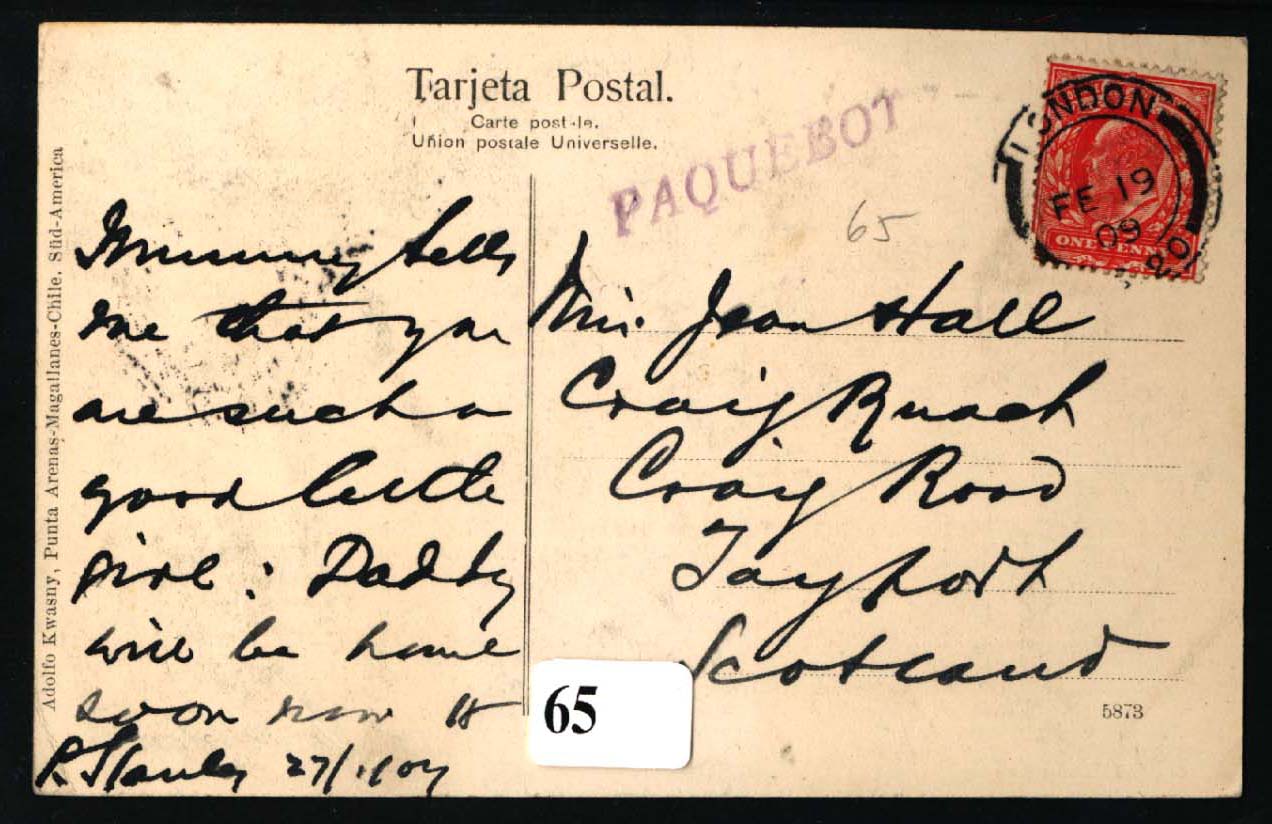 Tarjeta Postal.
Carte postale.
Uñion postale Universelle.
PAQUEBOT
65
LONDON
FE 19
09
ONE PENNY
Adolfo Kwasny, Punta Arenas-Magallanes-Chile. Süd-America
Mummy tells
me that you
are such a
good little
girl: Daddy
will be home
soon now
P. Stanley 27/1/09
Miss Jean Hall
Craig Ruach
Craig Road
Tayport
Scotland
65
5873